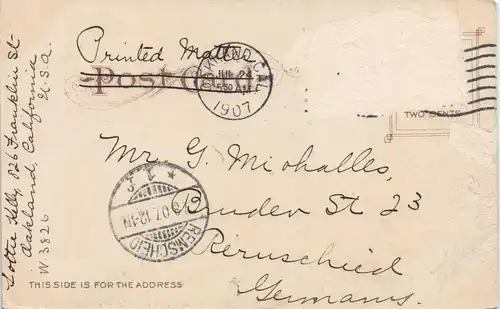 Printed Matter
Post Card
OAKLAND, CAL.
JUL 24
5 30 AM
1907
TWO CENTS
Mr. G. Michalles,
Bruder St 23
Remschied
Germany.
REMSCHEID
07. 12-1N
* 1 c
THIS SIDE IS FOR THE ADDRESS
Lottie Kelly, 826 Franklin St-
Oakland, California
W. 3826 U.S.A.